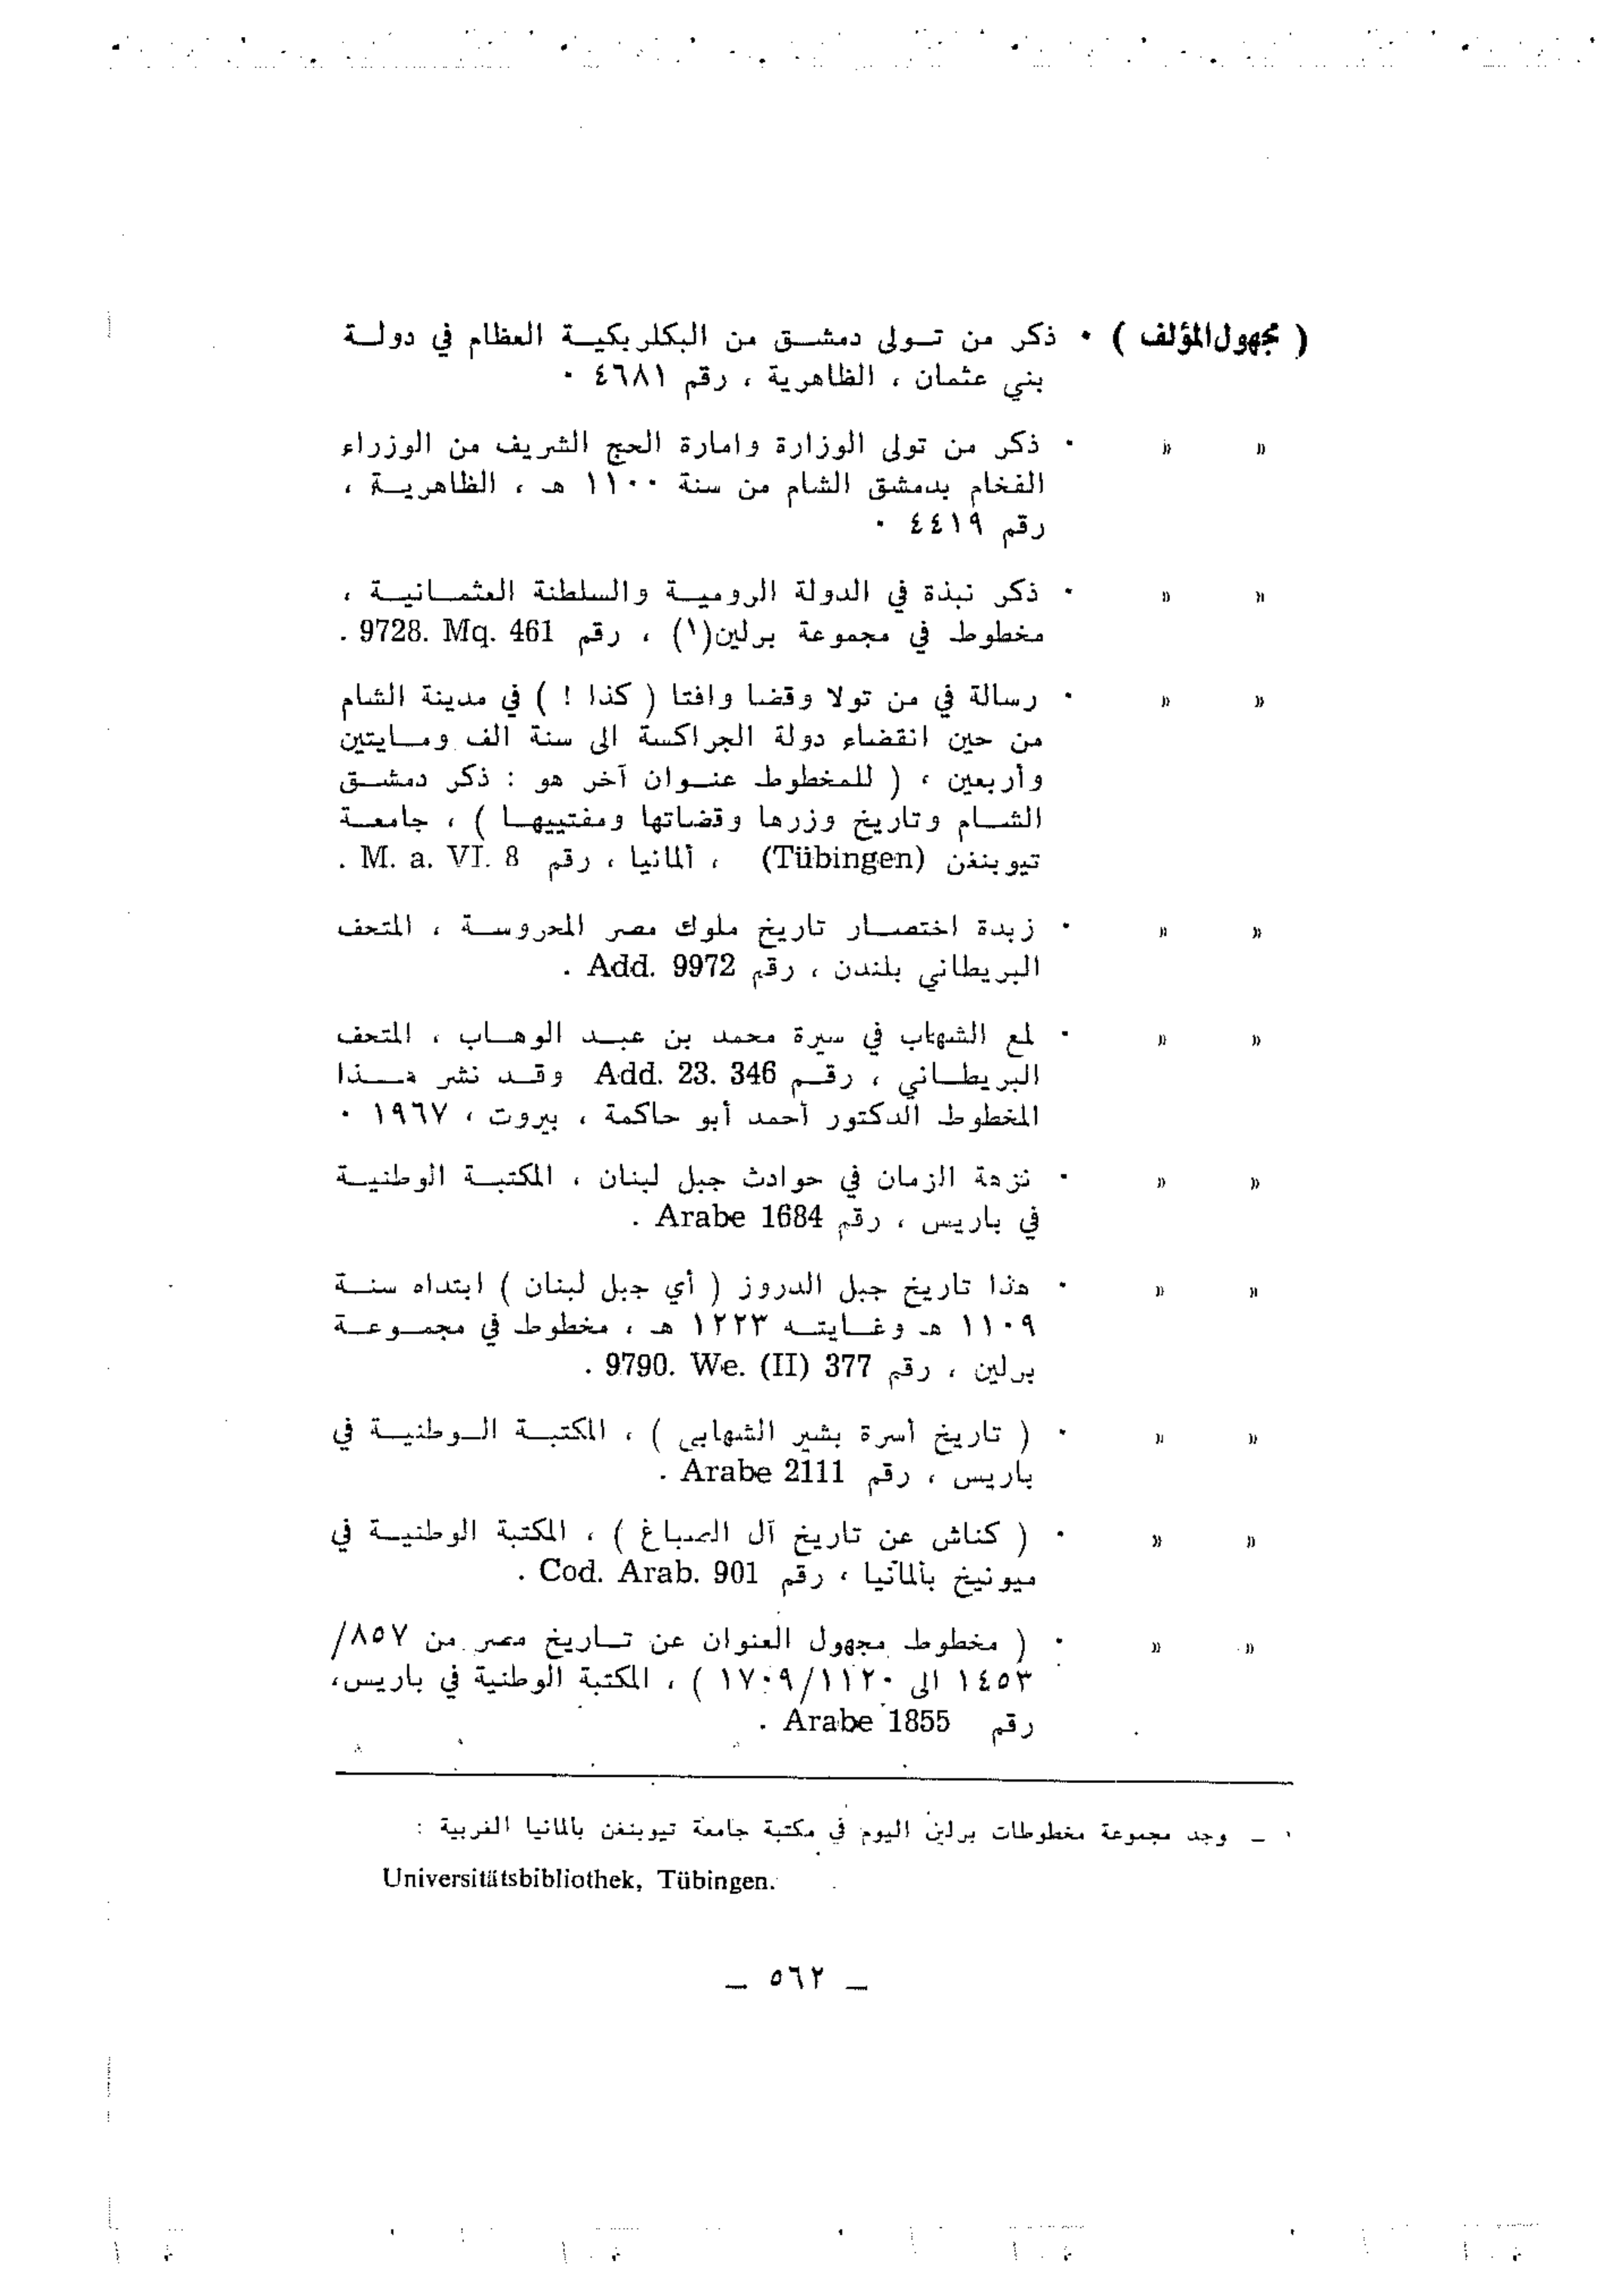 ( مجهول المؤلف ) ٠ ذكر من تولى دمشق من البكلربكية العظام في دولة
بني عثمان ، الظاهرية ، رقم ٤٦٨١ ٠
» » ٠ ذكر من تولى الوزارة وامارة الحج الشريف من الوزراء
الفخام بدمشق الشام من سنة ١١٠٠ هـ ، الظاهرية ،
رقم ٤٤١٩ ٠
» » ٠ ذكر نبذة في الدولة الرومية والسلطنة العثمانية ،
مخطوط في مجموعة برلين(١) ، رقم 9728. Mq. 461 .
» » ٠ رسالة في من تولا وقضا وافتا ( كذا ! ) في مدينة الشام
من حين انقضاء دولة الجراكسة الى سنة الف ومايتين
وأربعين ، ( للمخطوط عنوان آخر هو : ذكر دمشق
الشام وتاريخ وزرها وقضاتها ومفتييها ) ، جامعة
تيوبنغن (Tübingen) ، ألمانيا ، رقم M. a. VI. 8 .
» » ٠ زبدة اختصار تاريخ ملوك مصر المحروسة ، المتحف
البريطاني بلندن ، رقم Add. 9972 .
» » ٠ لمع الشهاب في سيرة محمد بن عبد الوهاب ، المتحف
البريطاني ، رقم Add. 23. 346 وقد نشر هذا
المخطوط الدكتور أحمد أبو حاكمة ، بيروت ، ١٩٦٧ ٠
» » ٠ نزهة الزمان في حوادث جبل لبنان ، المكتبة الوطنية
في باريس ، رقم Arabe 1684 .
» » ٠ هذا تاريخ جبل الدروز ( أي جبل لبنان ) ابتداه سنة
١١٠٩ هـ وغايته ١٢٢٣ هـ ، مخطوط في مجموعة
برلين ، رقم 9790. We. (II) 377 .
» » ٠ ( تاريخ أسرة بشير الشهابي ) ، المكتبة الوطنية في
باريس ، رقم Arabe 2111 .
» » ٠ ( كناش عن تاريخ آل الصباغ ) ، المكتبة الوطنية في
ميونيخ بألمانيا ، رقم Cod. Arab. 901 .
» » ٠ ( مخطوط مجهول العنوان عن تاريخ مصر من ٨٥٧/
١٤٥٣ الى ١٧٠٩/١١٢٠ ) ، المكتبة الوطنية في باريس،
رقم Arabe 1855 .
١ ــ وجد مجموعة مخطوطات برلين اليوم في مكتبة جامعة تيوبنغن بألمانيا الغربية :
Universitätsbibliothek, Tübingen.
ــ ٥٦٢ ــ